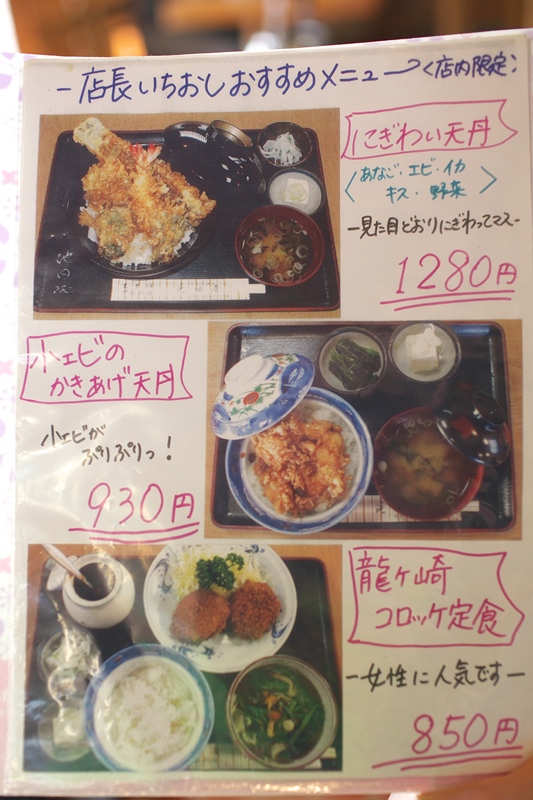 ー店長いちおしおすすめメニュー〈店内限定〉
にぎわい天丼
〈あなご・エビ・イカ
キス・野菜〉
ー見た目どおりにぎわってマスー
1280円
小エビの
かきあげ天丼
小エビが
ぷりぷりっ！
930円
龍ヶ崎
コロッケ定食
ー女性に人気ですー
850円